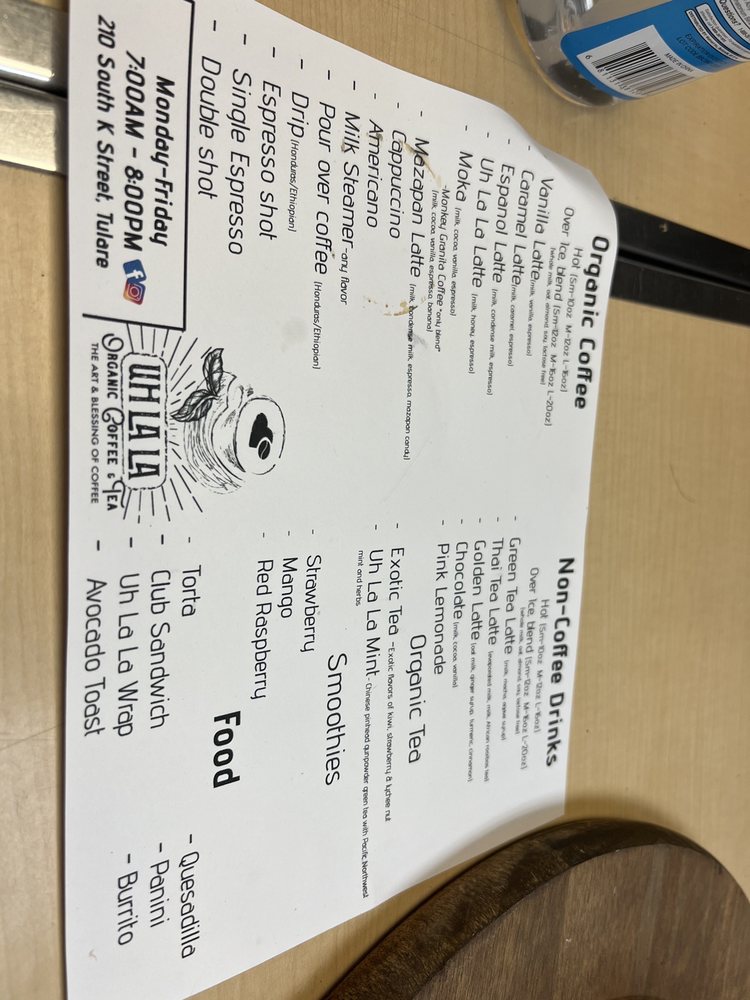 Organic Coffee
Hot (Sm-10oz M-12oz L-16oz)
Over Ice, blend (Sm-12oz M-16oz L-20oz)
(whole milk, oat, almond, soy, lactose free)
- Vanilla Latte (milk, vanilla, espresso)
- Caramel Latte (milk, caramel, espresso)
- Espanol Latte (milk, condense milk, espresso)
- Uh La La Latte (milk, honey, espresso)
- Moka (milk, cocoa, vanilla, espresso)
-Monkey Granita Coffee "only blend"
(milk, cocoa, vanilla, espresso, banana)
- Mazapan Latte (milk, condense milk, espresso, mazapan candy)
- Cappuccino
- Americano
- Milk Steamer -any flavor
- Pour over coffee (Honduras/Ethiopian)
- Drip (Honduras/Ethiopian)
- Espresso shot
- Single Espresso
- Double shot
Monday-Friday
7:00AM - 8:00PM
210 South K Street, Tulare
UH LA LA
ORGANIC COFFEE & TEA
THE ART & BLESSING OF COFFEE
Non-Coffee Drinks
Hot (Sm-10oz M-12oz L-16oz)
Over Ice, blend (Sm-12oz M-16oz L-20oz)
(whole milk, oat, almond, soy, lactose free)
- Green Tea Latte (milk, matcha, agave syrup)
- Thai Tea Latte (evaporated milk, milk, African rooibos, tea)
- Golden Latte (oat milk, ginger syrup, turmeric, cinnamon)
- Chocolate (milk, cocoa, vanilla)
- Pink Lemonade
Organic Tea
- Exotic Tea -Exotic flavors of kiwi, strawberry & lychee nut
- Uh La La Mint- Chinese pinhead gunpowder green tea with Pacific Northwest
mint and herbs
Smoothies
- Strawberry
- Mango
- Red Raspberry
Food
- Torta
- Club Sandwich
- Uh La La Wrap
- Avocado Toast
- Quesadilla
- Panini
- Burrito